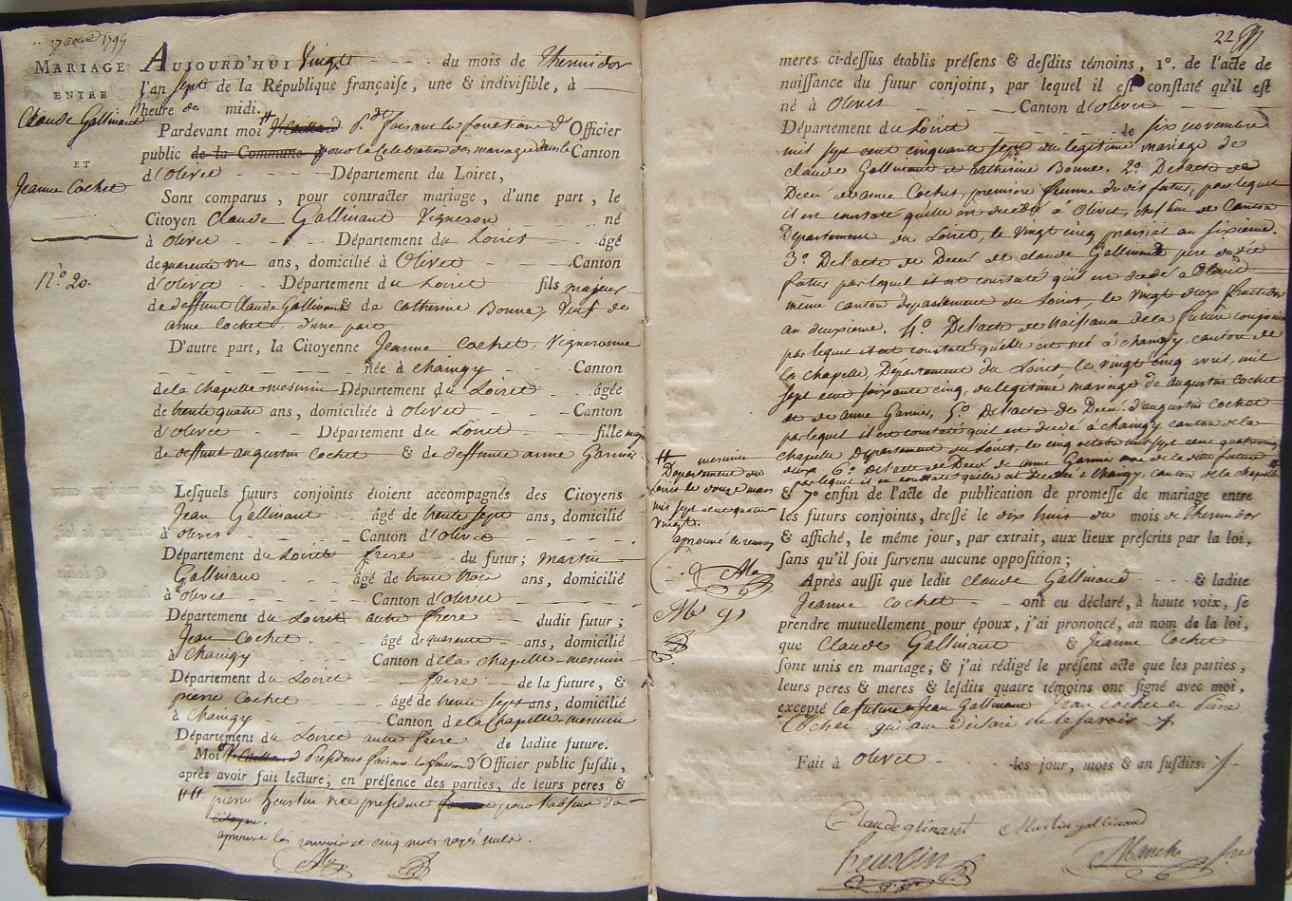 17 aout 1799
MARIAGE
ENTRE
Claude Gallinant
ET
Jeanne Cochet
N.º 20.
AUJOURD'HUI Vingt du mois de Thermidor
l'an sept de la République françaiſe, une & indiviſible, à
l'heure de midi.
Pardevant moi faisant les fonctions d'Officier
public de la Commune pour la Celebration des mariages dans le Canton
d'Olivet Département du Loiret,
Sont comparus, pour contracter mariage, d'une part, le
Citoyen Claude Gallinant Vigneron né
à Olivet Département du Loiret âgé
de quarente un ans, domicilié à Olivet Canton
d'Olivet Département du Loiret fils majeur
de deffunt Claude Gallinant & de Catherine Bonne, Veuf de
anne Cochet, d'une part
D'autre part, la Citoyenne Jeanne Cochet, Vigneronne
née à chaingy Canton
de la chapelle mesmin Département du Loiret âgée
de trente quatre ans, domiciliée à Olivet Canton
d'Olivet Département du Loiret fille
de deffunt augustin Cochet & de deffunte anne Garnier
Leſquels futurs conjoints étoient accompagnés des Citoyens
Jean Gallinant âgé de trente sept ans, domicilié
à Olivet Canton d'Olivet
Département du Loiret frere du futur; martin
Gallinant âgé de trente trois ans, domicilié
à Olivet Canton d'Olivet
Département du Loiret autre frere dudit futur;
Jean Cochet âgé de quarente ans, domicilié
à chaingy Canton de la chapelle mesmin
Département du Loiret frere de la future, &
pierre Cochet âgé de trente sept ans, domicilié
à Chaingy Canton de la Chapelle mesmin
Département du Loiret autre frere de ladite future.
Moi President faisant les d'Officier public ſuſdit,
après avoir fait lecture, en préſence des parties, de leurs peres &
pierre vice president pour l'absence du
citoyen.
approuvé les renvois et cinq mots rayés nuls.
22
meres ci-deſſus établis préſens & deſdits témoins, 1º. de l'acte de
naiſſance du futur conjoint, par lequel il eſt conſtaté qu'il eſt
né à Olivet Canton d'Olivet
Département du Loiret le six novembre
mil sept cent cinquante sept du legitime mariage de
Claude Gallinant et Catherine Bonne. 2º. De l'acte de
Decès de anne Cochet, premiere femme dudit futur, par lequel
il est constaté qu'elle est decedée à Olivet, chef lieu de Canton
Département du Loiret, le vingt cinq prairial an sixieme.
3º. De l'acte de Decès de claude Gallinant pere dudit
futur par lequel il est constaté qu'il est decedé à Olivet
même canton departement du Loiret, le vingt deux
an deuxieme. 4º. De l'acte de Naissance de la future conjointe
par lequel il est constaté qu'elle est née à chaingy canton de
la chapelle, Département du Loiret, le vingt cinq avril mil
sept cent soixante cinq, du legitime mariage de augustin Cochet
et de anne Garnier, 5º. De l'acte de Decès d'augustin Cochet
par lequel il est constaté qu'il est decedé à chaingy canton de la
chapelle Departement du Loiret, le cinq octobre mil sept cent quatre vingt
deux 6º. De l'acte de Decès de anne Garnier mere de la ditte future
par lequel il est constaté qu'elle est decedée à chaingy, canton de la chapelle
mesmin
Departement du
Loiret le douze mars
mil sept cent quatre
vingt.
approuvé le renvoy
& 7º enfin de l'acte de publication de promeſſe de mariage entre
les futurs conjoints, dreſſé le dix huit du mois de thermidor
& affiché, le même jour, par extrait, aux lieux preſcrits par la loi,
ſans qu'il ſoit ſurvenu aucune oppoſition;
Après auſſi que ledit Claude Gallinant & ladite
Jeanne Cochet ont eu déclaré, à haute voix, ſe
prendre mutuellement pour époux, j'ai prononcé, au nom de la loi,
que Claude Gallinant & Jeanne Cochet
ſont unis en mariage; & j'ai rédigé le préſent acte que les parties,
leurs peres & meres & leſdits quatre témoins ont ſigné avec moi,
excepté la future et Jean Gallinant Jean Cochet et pierre
Cochet qui ont Déclaré ne le savoir.
Fait à Olivet les jour, mois & an ſuſdits.
Claude glinant Martin gallinant